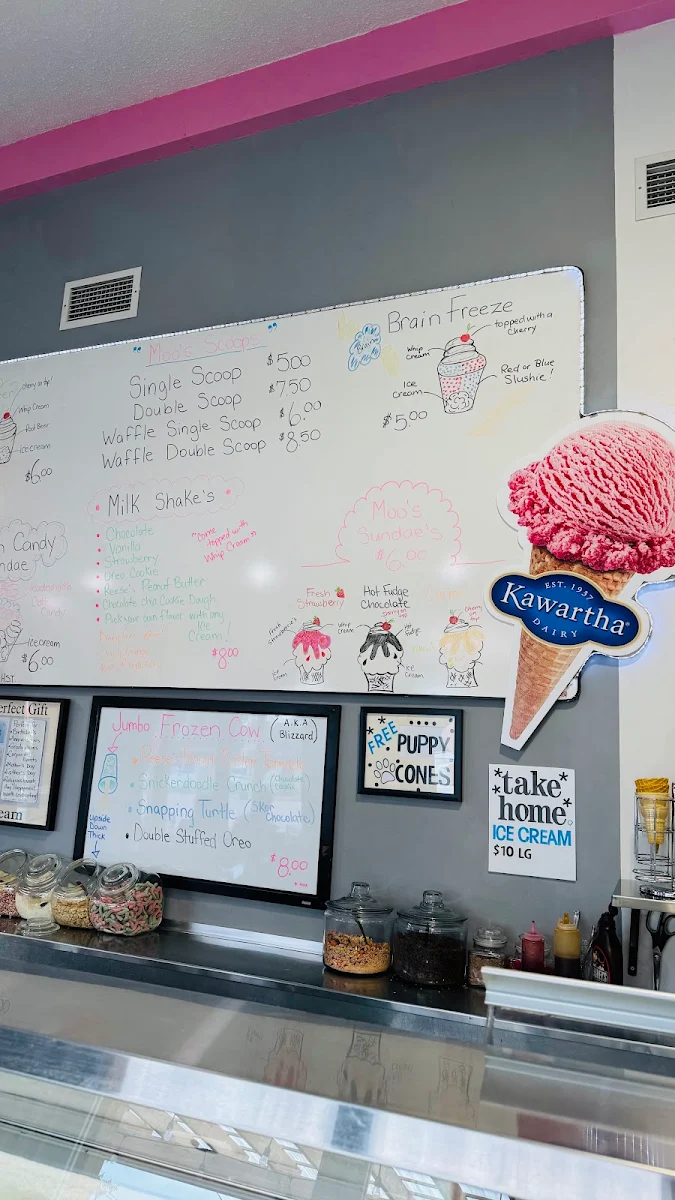 Moo's Scoops
Single Scoop $5.00
Double Scoop $7.50
Waffle Single Scoop $6.00
Waffle Double Scoop $8.50
Brain Freeze
topped with a
cherry
Whip
cream
Ice
cream
Red or Blue
Slushie!
$5.00
cherry on top!
Whip Cream
Root Beer
Ice cream
$6.00
Milk Shake's
• Chocolate
• Vanilla
• Strawberry
• Oreo Cookie
• Reese's Peanut Butter
• Chocolate chip Cookie Dough
• Pick your own flavor with any
Ice
Cream!
$8.00
topped with
Whip Cream
Moo's
Sundae's
$6.00
Candy
Candy
Ice cream
$6.00
Fresh
Strawberry
Whip
cream
Ice
cream
Hot Fudge
Chocolate
Ice
cream
Ice
cream
EST. 1937
Kawartha
DAIRY
Perfect Gift
Jumbo Frozen Cow (A.K.A
Blizzard)
• Snickerdoodle Crunch
• Snapping Turtle (Skor
Chocolate)
• Double Stuffed Oreo
Upside
Down
Thick
$8.00
FREE PUPPY
CONES
take
home
ICE CREAM
$10 LG